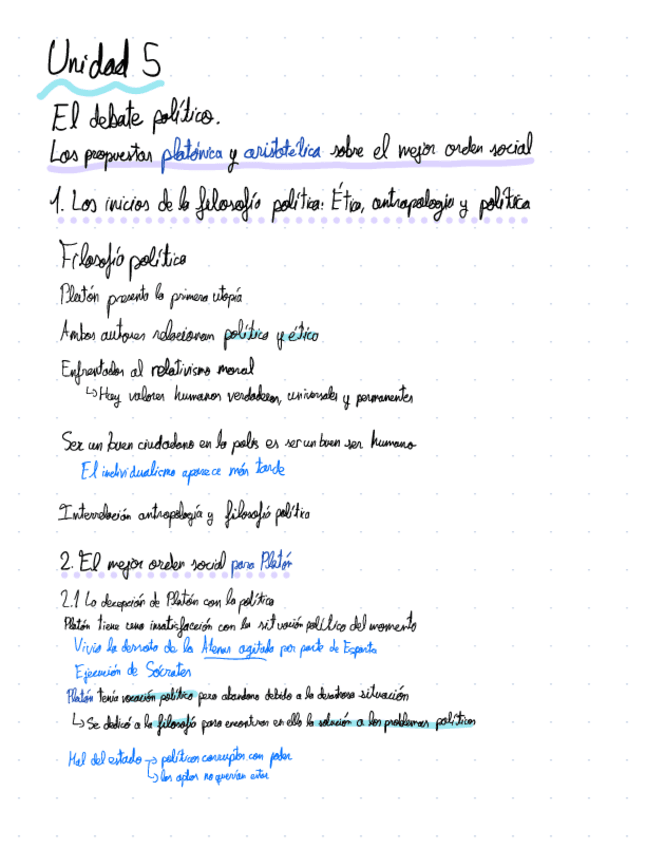 Unidad 5
El debate político.
Las propuestas platónica y aristotélica sobre el mejor orden social
1. Los inicios de la filosofía política: Ética, antropología y política
Filosofía política
Platón presenta la primera utopía
Ambos autores relacionan política y ética
Enfrentados al relativismo moral
↳ Hay valores humanos verdaderos, universales y permanentes
Ser un buen ciudadano en la polis es ser un buen ser humano
El individualismo aparece más tarde
Interrelación antropología y filosofía política
2. El mejor orden social para Platón
2.1 La decepción de Platón con la política
Platón tiene una insatisfacción con la situación política del momento
Vivio la derrota de la Atenas agitada por parte de Esparta
Ejecución de Sócrates
Platón tenía vocación política pero abandona debido a la desastrosa situación
↳ Se dedicó a la filosofía para encontrar en ella la solución a los problemas políticos
Mal del estado → políticos corruptos con poder
↳ los aptos no querían estar